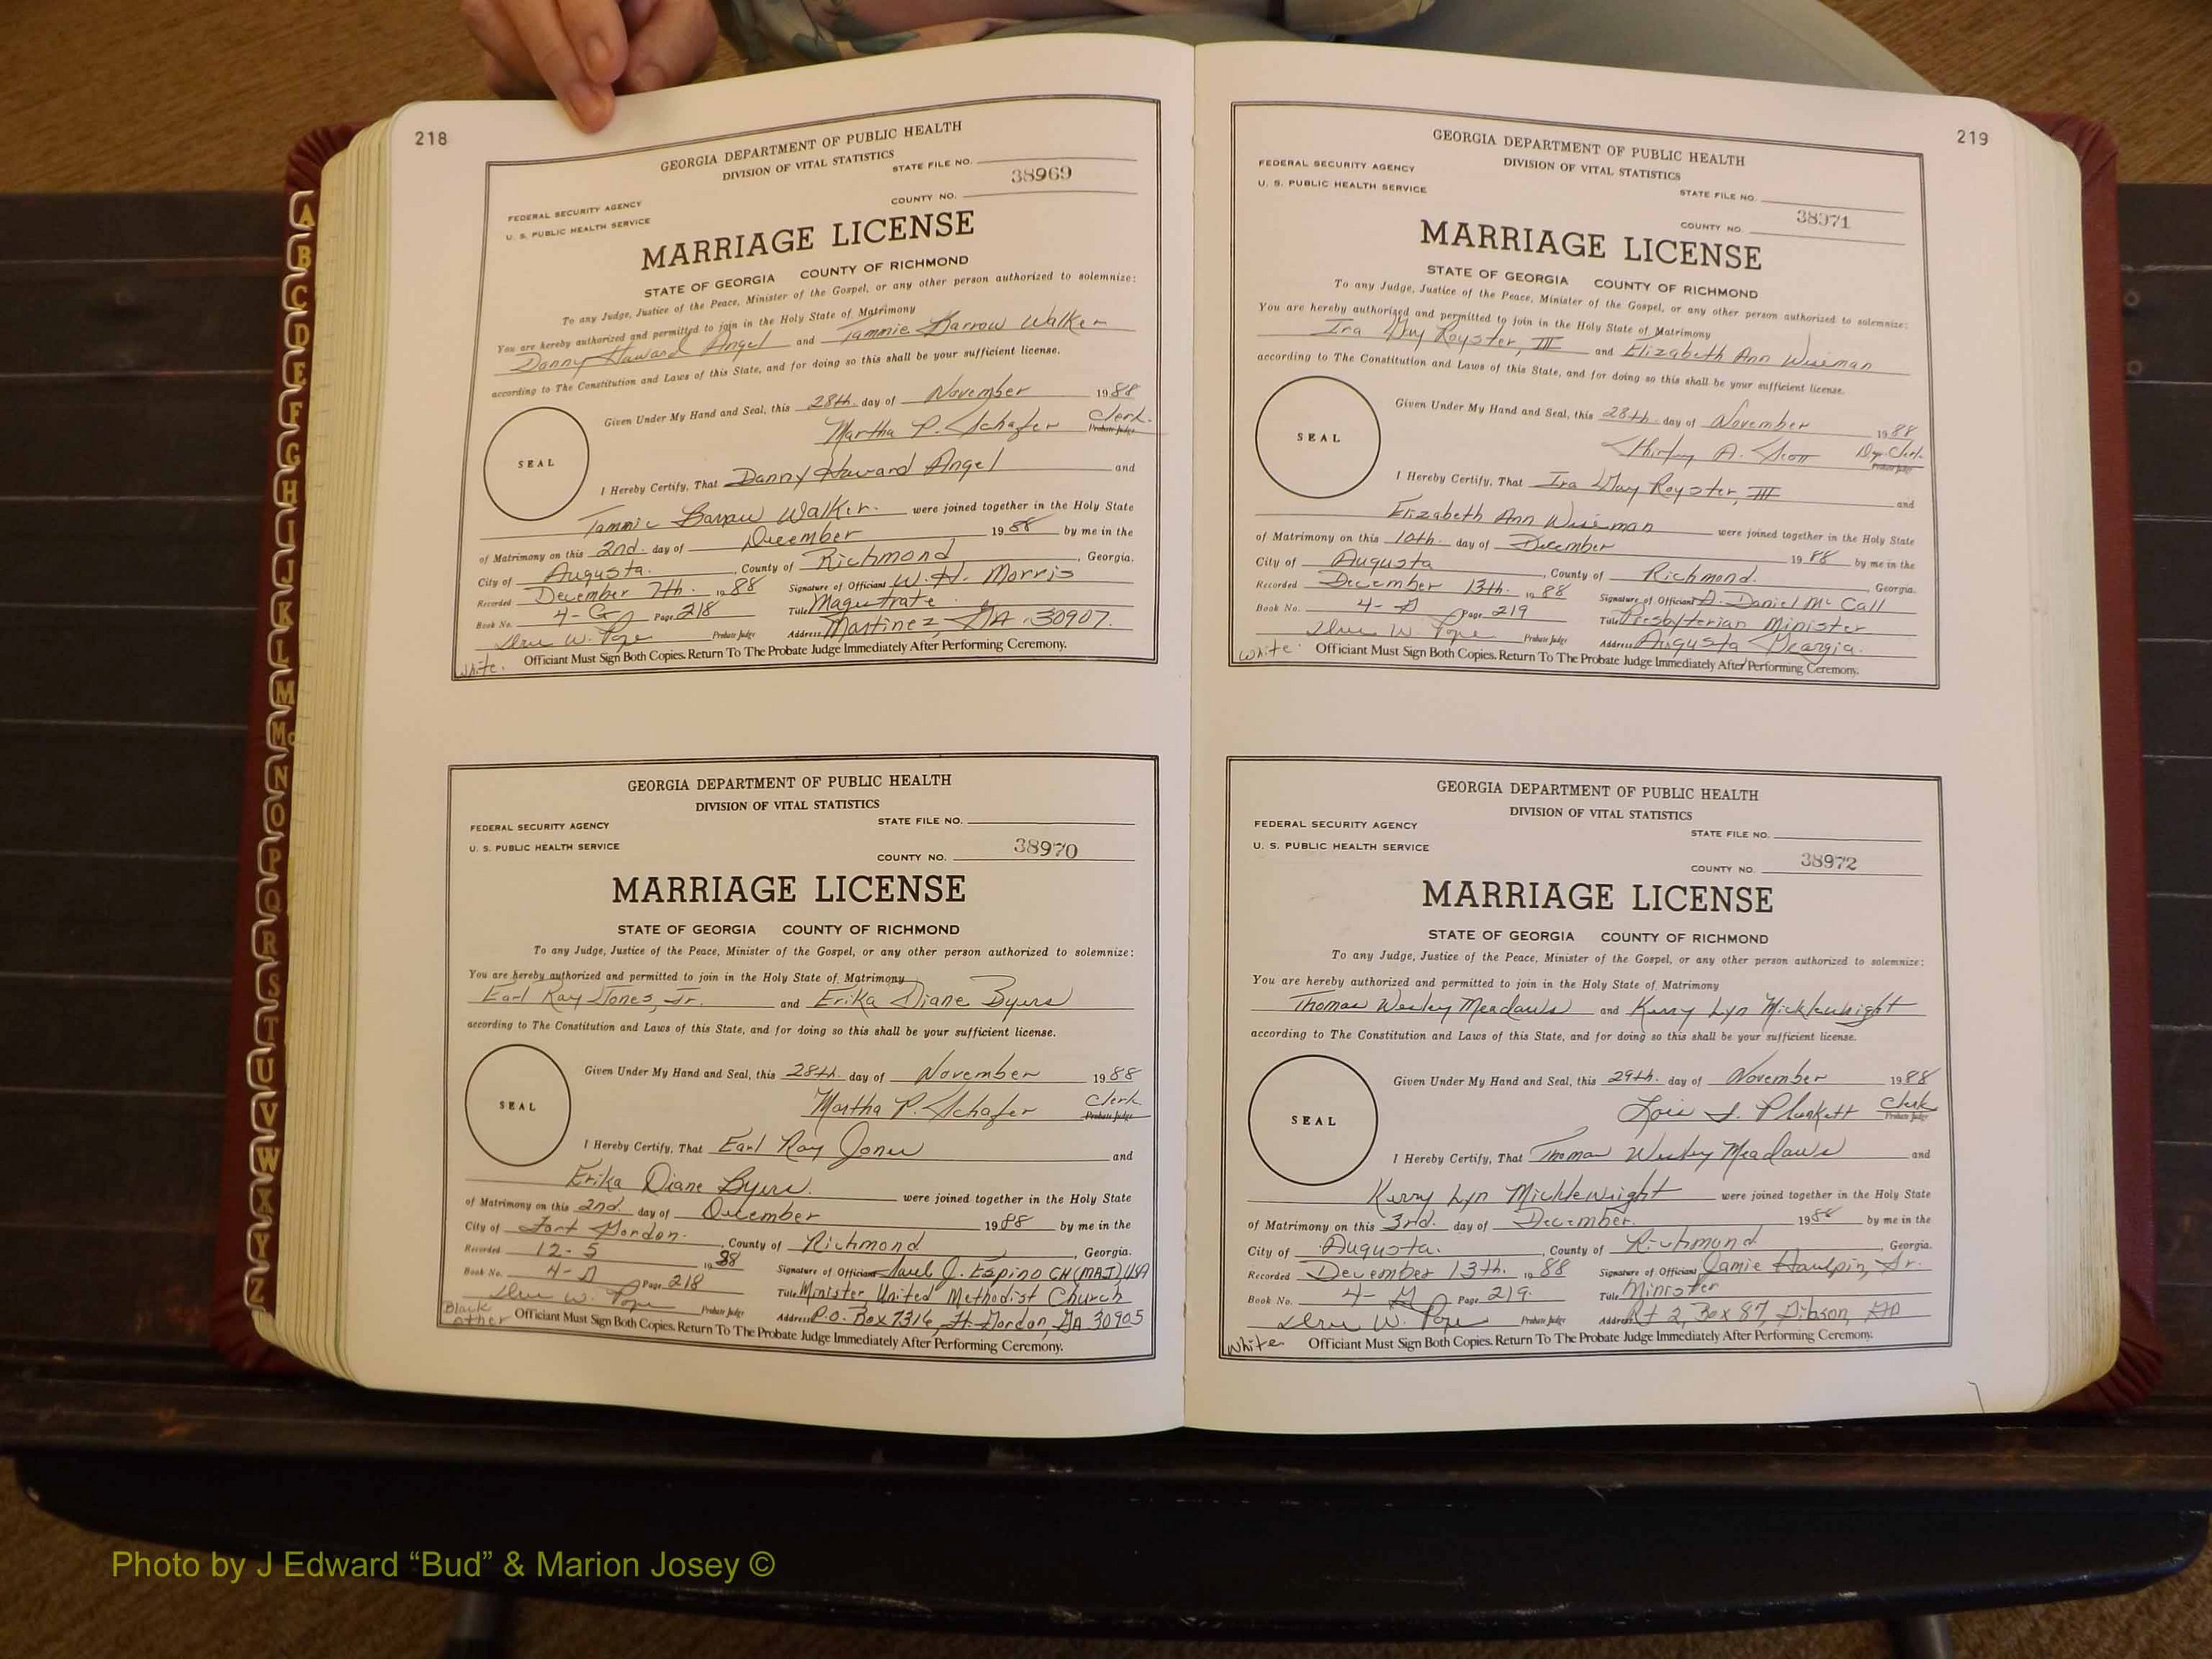 218
GEORGIA DEPARTMENT OF PUBLIC HEALTH
DIVISION OF VITAL STATISTICS
STATE FILE NO.
38969
COUNTY NO.
FEDERAL SECURITY AGENCY
U. S. PUBLIC HEALTH SERVICE
MARRIAGE LICENSE
STATE OF GEORGIA COUNTY OF RICHMOND
To any Judge, Justice of the Peace, Minister of the Gospel, or any other person authorized to solemnize:
You are hereby authorized and permitted to join in the Holy State of Matrimony
Danny Howard Angel and Tammie Barrow Walker
according to The Constitution and Laws of this State, and for doing so this shall be your sufficient license.
Given Under My Hand and Seal, this 28th. day of November 1988
Martha P. Schafer Clerk.
Probate Judge
SEAL
I Hereby Certify, That Danny Howard Angel and
Tammie Barrow Walker. were joined together in the Holy State
of Matrimony on this 2nd. day of December 1988 by me in the
City of Augusta. , County of Richmond , Georgia.
Recorded December 7th. 1988 Signature of Officiant W. H. Morris
Book No. 4-G Page 218 Title Magistrate
Probate Judge Address Martinez, GA. 30907.
White. Officiant Must Sign Both Copies. Return To The Probate Judge Immediately After Performing Ceremony.
GEORGIA DEPARTMENT OF PUBLIC HEALTH
DIVISION OF VITAL STATISTICS
FEDERAL SECURITY AGENCY STATE FILE NO.
U. S. PUBLIC HEALTH SERVICE COUNTY NO. 38970
MARRIAGE LICENSE
STATE OF GEORGIA COUNTY OF RICHMOND
To any Judge, Justice of the Peace, Minister of the Gospel, or any other person authorized to solemnize:
You are hereby authorized and permitted to join in the Holy State of Matrimony
Earl Ray Jones, Jr. and Erika Diane Byers
according to The Constitution and Laws of this State, and for doing so this shall be your sufficient license.
Given Under My Hand and Seal, this 28th. day of November 1988
Martha P. Schafer Clerk.
Probate Judge
SEAL
I Hereby Certify, That Earl Ray Jones and
Erika Diane Byers. were joined together in the Holy State
of Matrimony on this 2nd. day of December 1988 by me in the
City of Fort Gordon. , County of Richmond , Georgia.
Recorded 12-5 1988 Signature of Officiant J. Espino CH (MAJ) USA
Book No. 4-G Page 218 Title Minister United Methodist Church
Probate Judge Address P.O. Box 7316, Ft. Gordon, GA 30905
Black
other Officiant Must Sign Both Copies. Return To The Probate Judge Immediately After Performing Ceremony.
219
GEORGIA DEPARTMENT OF PUBLIC HEALTH
DIVISION OF VITAL STATISTICS
FEDERAL SECURITY AGENCY
U. S. PUBLIC HEALTH SERVICE
STATE FILE NO.
COUNTY NO. 38971
MARRIAGE LICENSE
STATE OF GEORGIA COUNTY OF RICHMOND
To any Judge, Justice of the Peace, Minister of the Gospel, or any other person authorized to solemnize:
You are hereby authorized and permitted to join in the Holy State of Matrimony
Ira Guy Royster, III and Elizabeth Ann Wiseman
according to The Constitution and Laws of this State, and for doing so this shall be your sufficient license.
Given Under My Hand and Seal, this 28th. day of November 1988
Shirley A. Scott Dep. Clerk.
Probate Judge
SEAL
I Hereby Certify, That Ira Guy Royster, III and
Elizabeth Ann Wiseman were joined together in the Holy State
of Matrimony on this 10th. day of December 1988 by me in the
City of Augusta , County of Richmond. , Georgia.
Recorded December 13th. 1988 Signature of Officiant D. Daniel McCall
Book No. 4-G Page 219 Title Presbyterian Minister
Probate Judge Address Augusta Georgia.
White. Officiant Must Sign Both Copies. Return To The Probate Judge Immediately After Performing Ceremony.
GEORGIA DEPARTMENT OF PUBLIC HEALTH
DIVISION OF VITAL STATISTICS
FEDERAL SECURITY AGENCY STATE FILE NO.
U. S. PUBLIC HEALTH SERVICE COUNTY NO. 38972
MARRIAGE LICENSE
STATE OF GEORGIA COUNTY OF RICHMOND
To any Judge, Justice of the Peace, Minister of the Gospel, or any other person authorized to solemnize:
You are hereby authorized and permitted to join in the Holy State of Matrimony
Thomas Wesley Meadows and Kerry Lyn Micklewright
according to The Constitution and Laws of this State, and for doing so this shall be your sufficient license.
Given Under My Hand and Seal, this 29th. day of November 1988
Lois J. Plunkett Clerk
Probate Judge
SEAL
I Hereby Certify, That Thomas Wesley Meadows and
Kerry Lyn Micklewright were joined together in the Holy State
of Matrimony on this 3rd. day of December. 1988 by me in the
City of Augusta. , County of Richmond , Georgia.
Recorded December 13th. 1988 Signature of Officiant Jamie Sr.
Book No. 4-G Page 219. Title Minister
Probate Judge Address Rt 2, Box 87, Gibson, GA
White. Officiant Must Sign Both Copies. Return To The Probate Judge Immediately After Performing Ceremony.
A
B
C
D
E
F
G
H
I
J
K
L
M
Mc
N
O
P
Q
R
S
T
U
V
W
X
Y
Z
Photo by J Edward “Bud” & Marion Josey ©